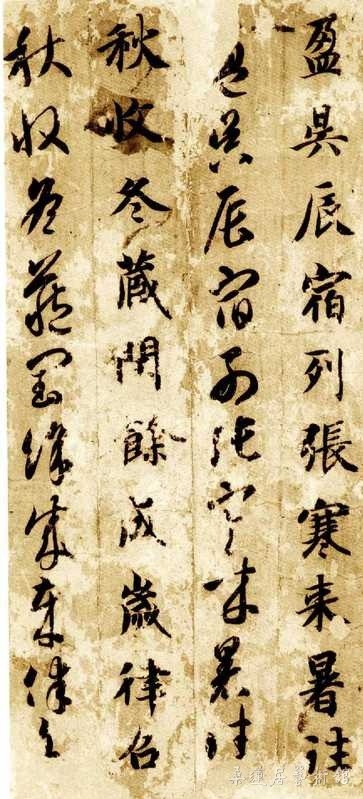 盈昃辰宿列張寒来暑往
盈昃辰宿列張寒来暑往
秋收冬藏閏餘成歲律召
秋收冬藏閏餘成歲律召
桑蓮居藝術館